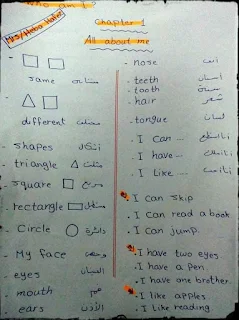 Who am I?
Mrs/Heba
Chapter 1
All about me
same
different مختلف
- shapes أشكال
- triangle مثلث
- square مربع
- rectangle مستطيل
- Circle دائرة
- My face وجهي
- eyes
- mouth فم
- ears الأذن
- nose أنف
- teeth أسنان
- tooth سنة
- hair شعر
- tongue لسان
. I can ...
. I have ...
. I like ...
. I can skip
. I can read a book
. I can jump
. I have two eyes
. I have a pen
. I have one brother
. I like apples
. I like reading